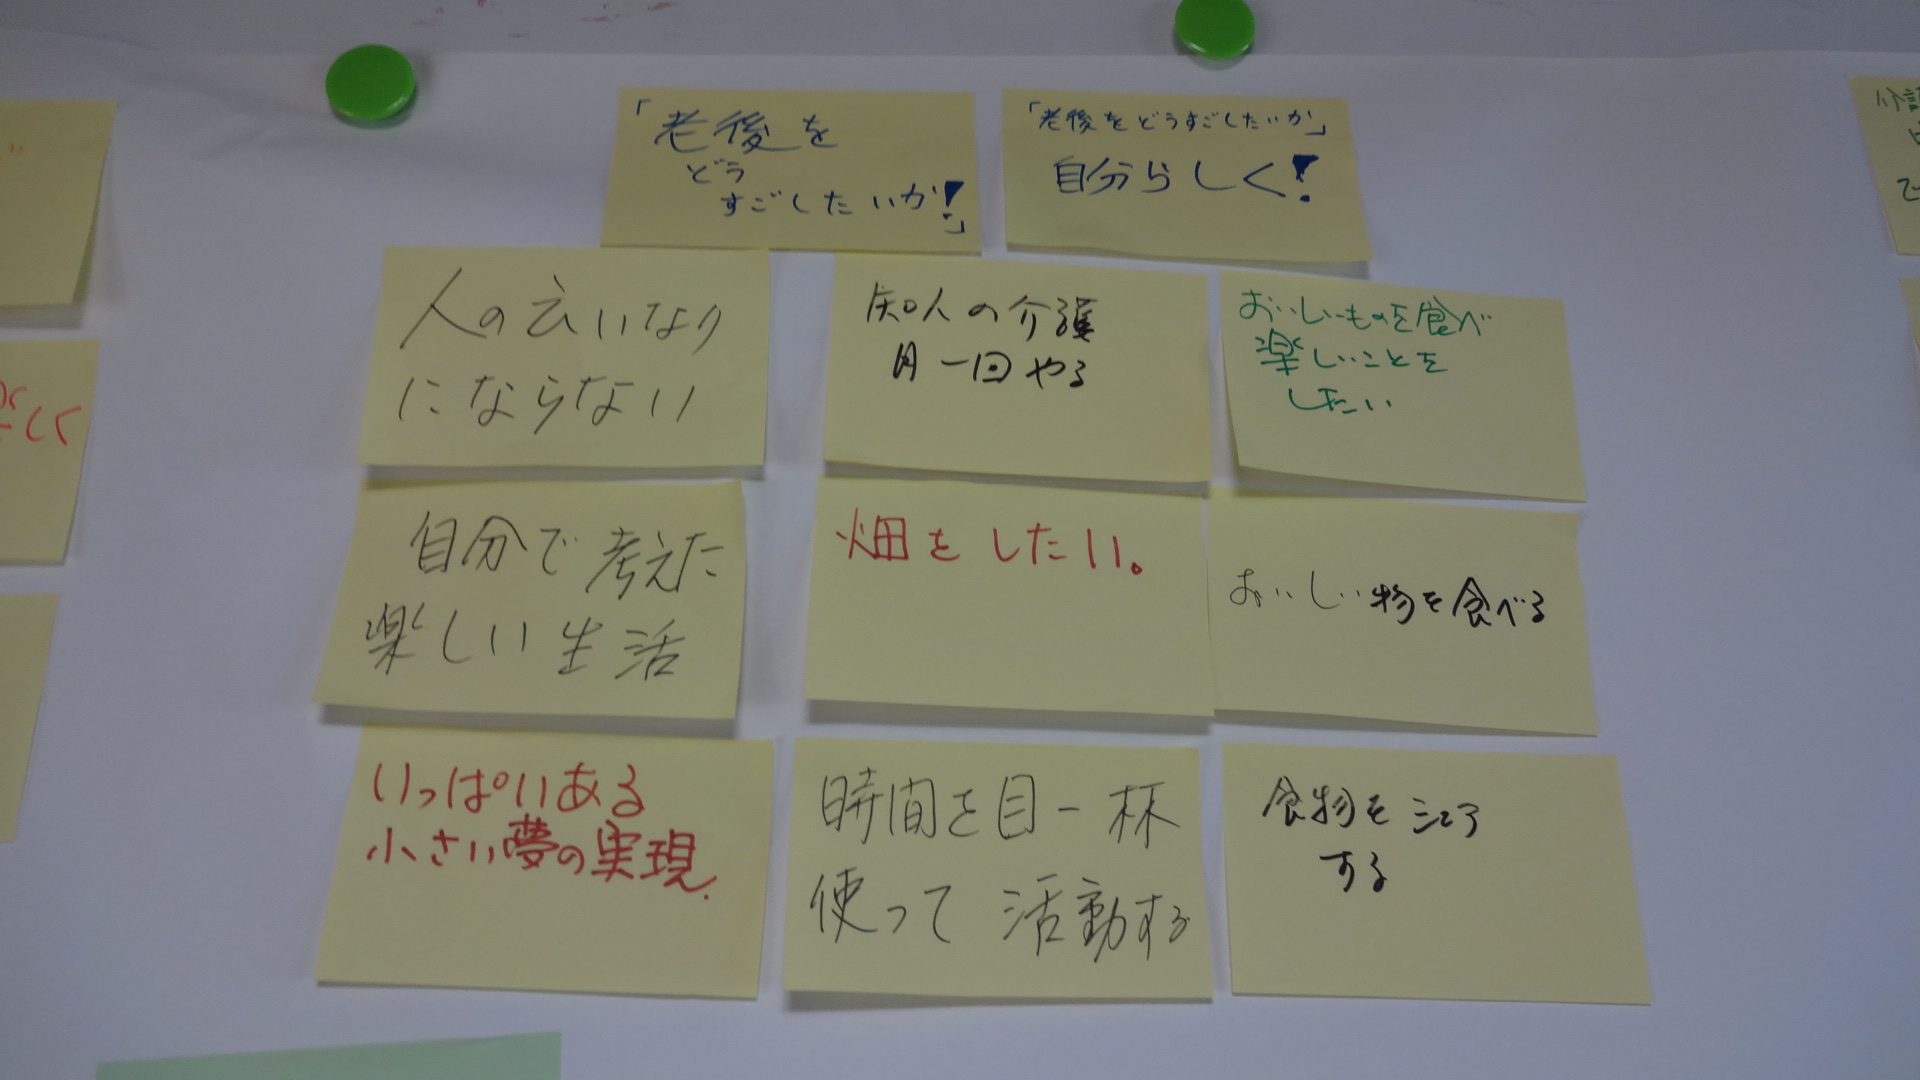 「老後を
どう
すごしたいか!」
「老後をどうすごしたいか」
自分らしく!
人の云いなり
にならない
知人の介護
月一回やる
おいしいものを食べ
楽しいことを
したい
自分で考えた
楽しい生活
畑をしたい。
おいしい物を食べる
いっぱいある
小さい夢の実現.
時間を目一杯
使って活動する
食物をシェア
する